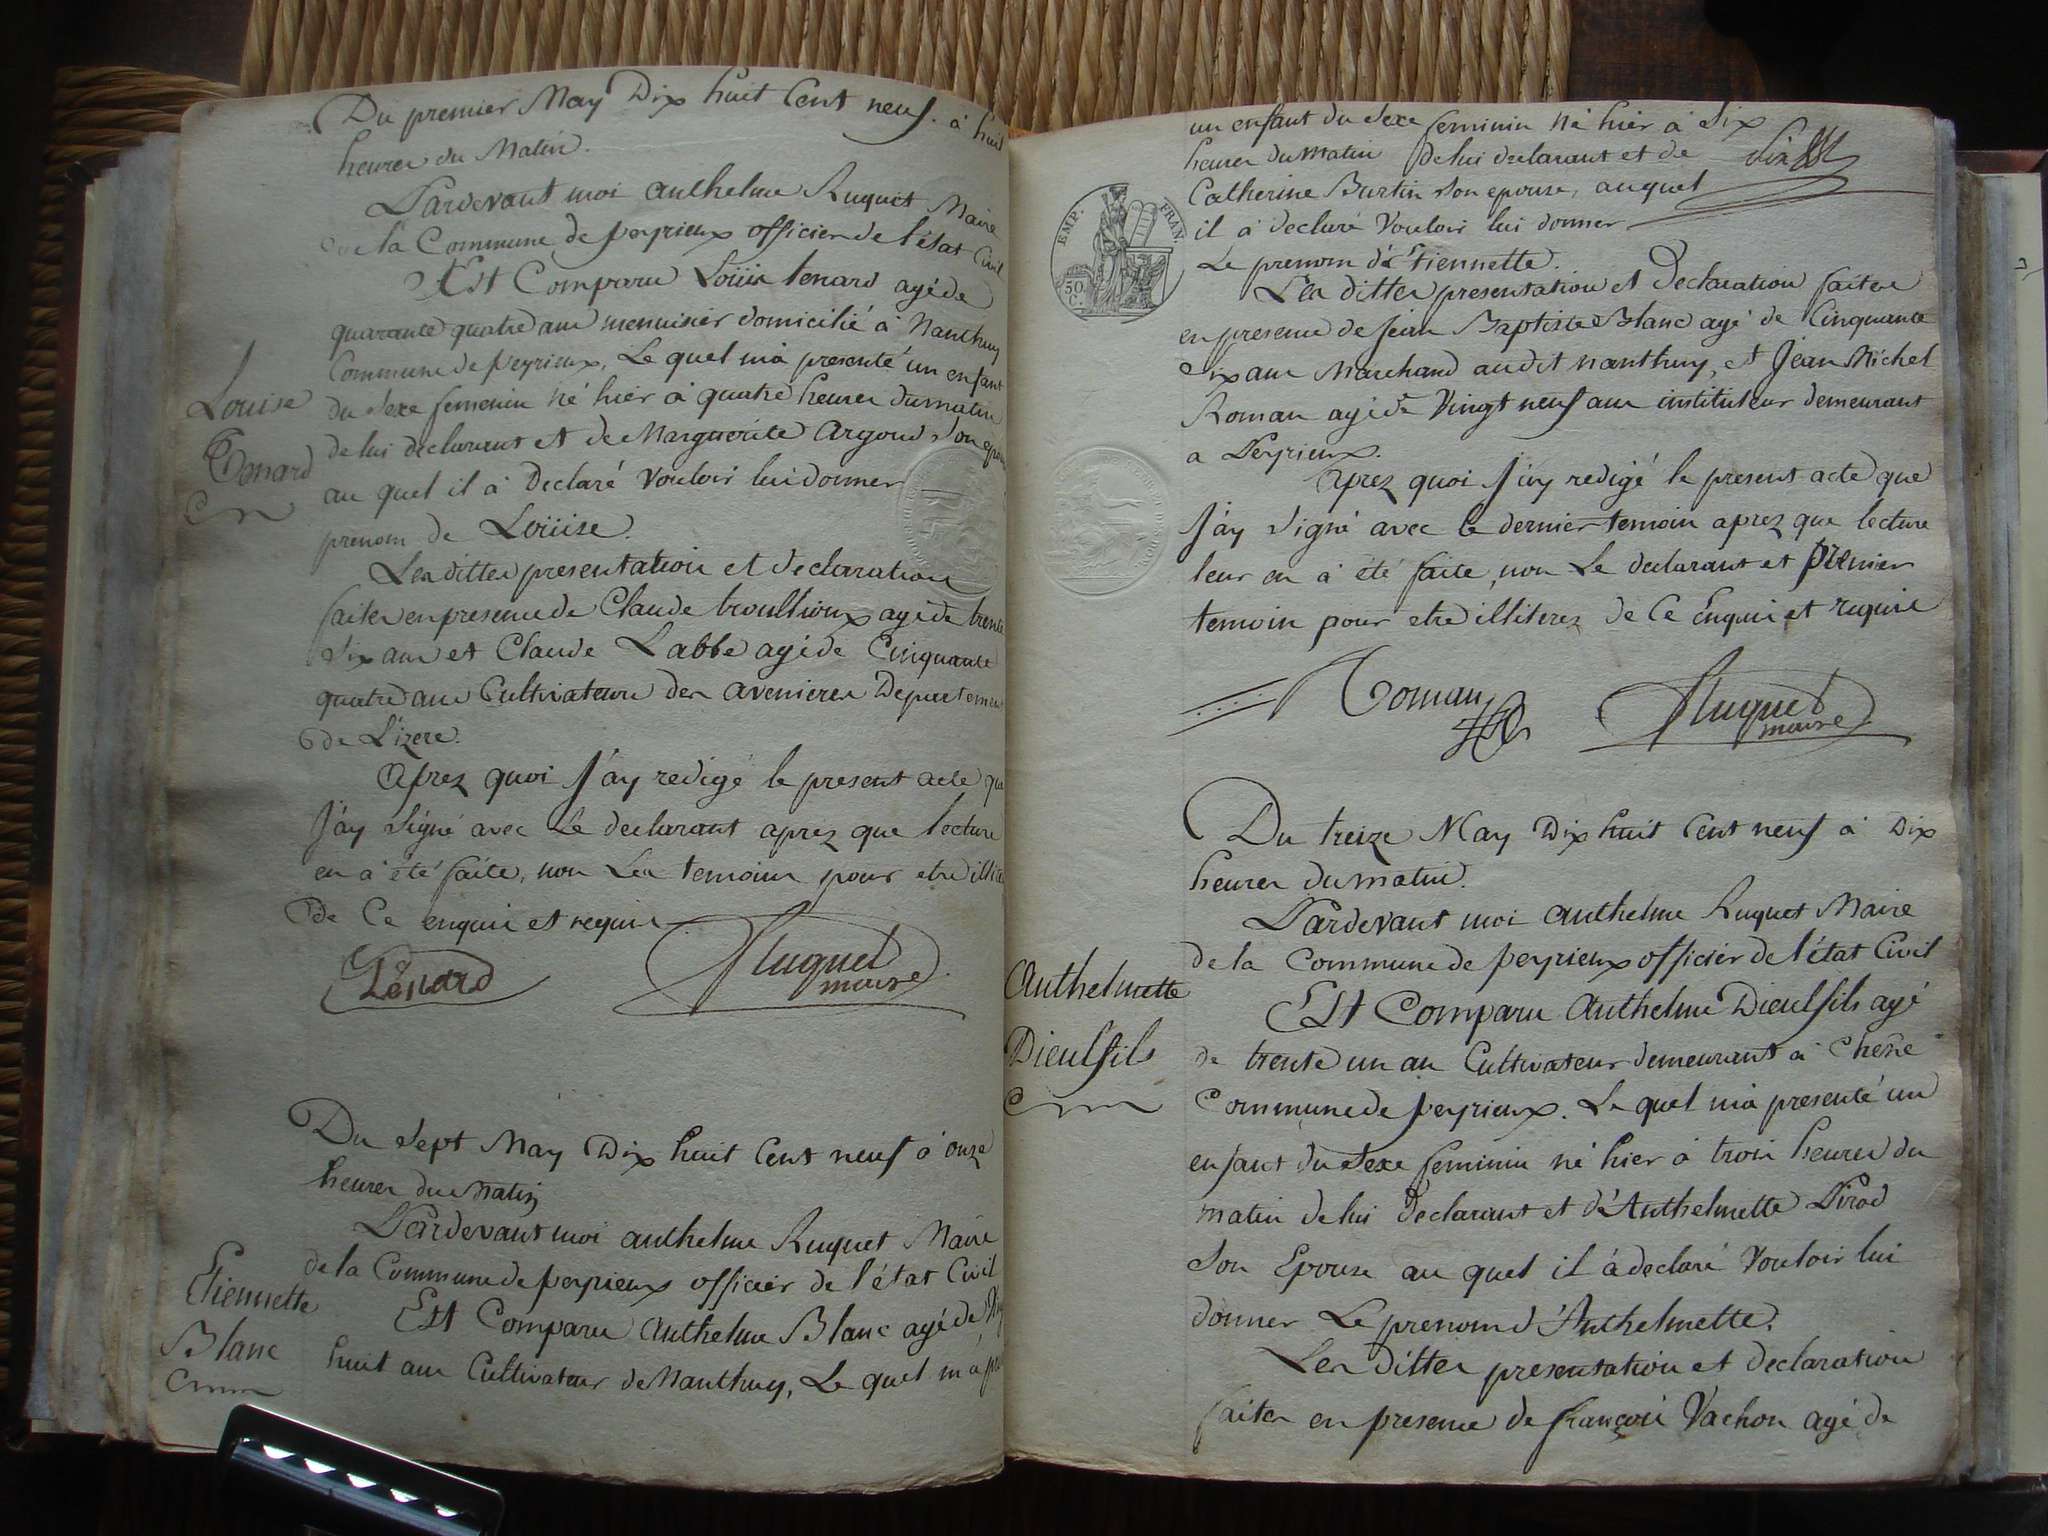 Du premier May Dix huit Cent neuf. à huit
heures du Matin.
Pardevant moi anthelme Ruquet Maire
de la Commune de peyrieux officier de l'état Civil
Est Comparu Loüis tenard agé de
quarante quatre ans menuisier domicilié à Nanthuy
Commune de peyrieux, Le quel m'à presenté un enfant
Louise
du Sexe femenin né hier à quatre heures du matin
de lui declarant et de Marguerite Argoud Son
Tenard
au quel il à Declaré vouloir lui donner
prenom de Loüise.
Les dittes presentation et declaration
faites en presence de Claude trouillioux agé de trente
Six ans et Claude Labbe agé de Cinquante
quatre ans Cultivateurs des avenieres Departement
de L'izere.
Aprez quoi J'ay redigé le present acte que
J'ay Signé avec Le declarant aprez que lecture
en à été faite, non Les temoins pour etre
de Ce enquis et requis
Tenard
Ruquet
maire
Du Sept May Dix huit Cent neuf à onze
heures du Matin
Pardevant moi anthelme Ruquet Maire
de la Commune de peyrieux officier de l'état Civil
Etiennette
Est Comparu Anthelme Blanc agé de
Blanc
huit ans Cultivateur de Nanthuy, Le quel m'à
un enfant du Sexe feminin né hier à Six
heures du matin de lui declarant et de
Catherine Burtin Son epouse, auquel
il à declaré Vouloir lui donner
Le prenom d'Etiennette.
EMP. FRAN.
50
C.
Les dittes presentation et Declaration faites
en presence de Jean Baptiste Blanc agé de Cinquante
Six ans Marchand audit Nanthuy, et Jean Michel
Roman agé de Vingt neuf ans instituteur demeurant
a Peyrieux.
aprez quoi J'ay redigé le present acte que
J'ay Signé avec le dernier temoin aprez que lecture
leur en à été faite, non Le declarant et premier
temoin pour etre illiterez de Ce Enquis et requis
Roman
Ruquet
maire
Du treize May Dix huit Cent neuf à Dix
heures du matin.
Pardevant moi anthelme Ruquet Maire
de la Commune de peyrieux officier de l'état Civil
Anthelmette
Est Comparu Anthelme Dieulfils agé
Dieulfils
de trente un an Cultivateur demeurant à Chêne
Commune de peyrieux. Le quel m'à presenté un
enfant du Sexe feminin né hier à trois heures du
matin de lui declarant et d'Anthelmette Pirod
Son Epouse au quel il à declaré Vouloir lui
donner Le prenom d'Anthelmette.
Les dittes presentation et declaration
faites en presence de françois Vachon agé de